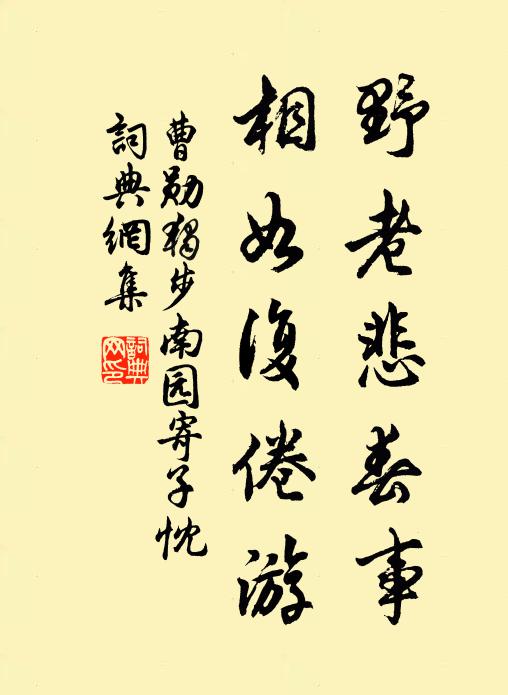 野老悲春事
相如復倦游
曹勋獨步南园寄子忱
詞典網集
詞典網印